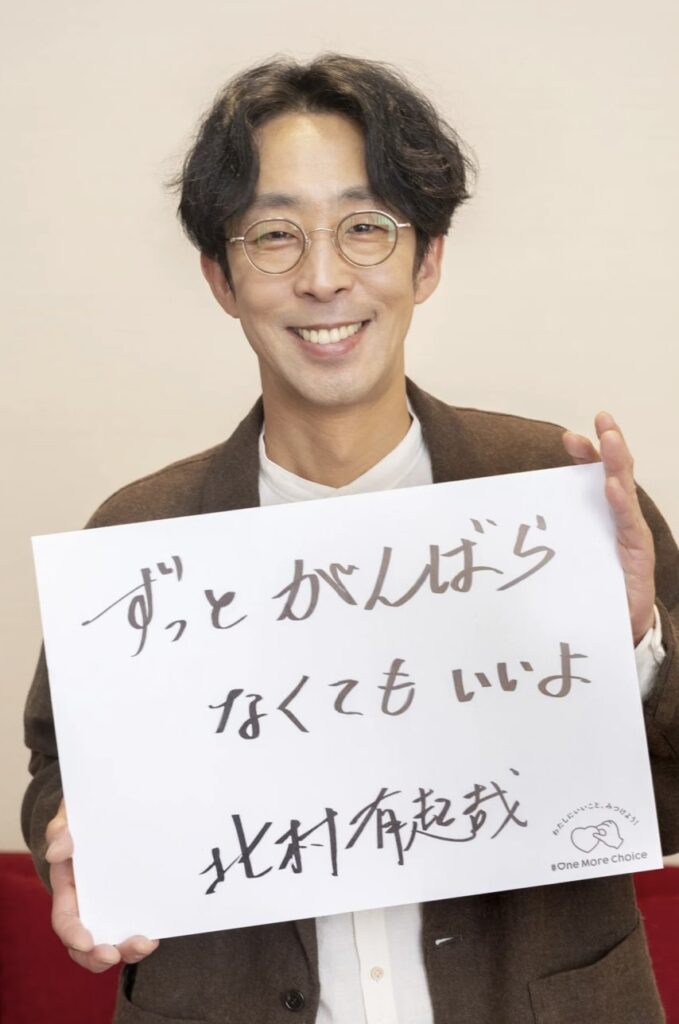 ずっと がんばら
なくても いいよ
北村有起哉
わたしにいいこと、みつけよう!
#One More Choice